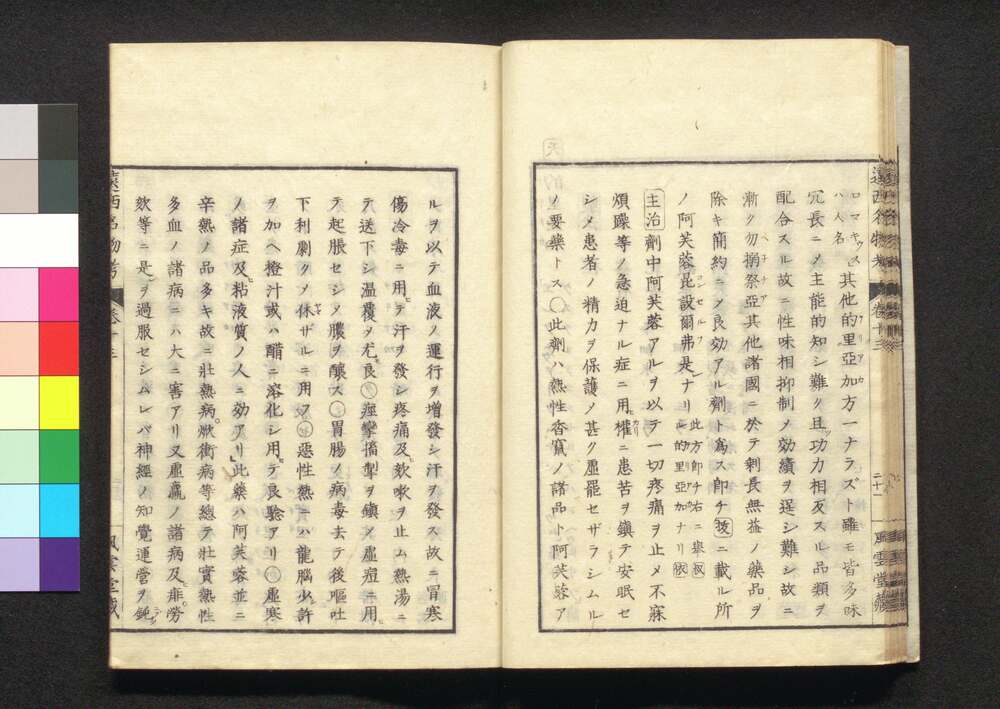 ロマキュス
ハ人名 其他的里亞加方一ナラズト雖モ皆多味
冗長ニ〆主能的知シ難ク且功力相反スル品類ヲ
配合スル故ニ性味相抑制ノ効績ヲ逞シ難シ故ニ
漸ク勿搦祭亞其他諸國ニ於テ剰長無益ノ藥品ヲ
除キ簡約ニ〆良効アル劑ト爲ス卽チ扶ニ載ル所
ノ阿芙蓉昆設爾弗是ナリ此方卽チ右ニ擧
ル的里亞加ナリ
主治 劑中阿芙蓉アルヲ以テ一切疼痛ヲ止メ不寐
煩躁等ノ急迫ナル症ニ用テ權ニ患苦ヲ鎭テ安眠セ
シメ患者ノ精力ヲ保護〆甚ク虛罷セザラシムル
ノ要藥トス○此劑ハ熱性香竄ノ諸品ト阿芙蓉ア
遠西名物考 卷十三 二十一 風雲堂藏
ルヲ以テ血液ノ運行ヲ増發シ汗ヲ發ス故ニ冒寒
傷冷毒ニ用テ汗ヲ發シ疼痛及欬嗽ヲ止ム熱湯ニ
テ送下シ温覆ヲ尤良○痙攣搐掣ヲ鎭メ虛痘ニ用
テ起脹セシメ膿ヲ釀ス○胃腸ノ病毒去テ後嘔吐
下利劇ク〆休ザルニ用フ○惡性熱ニハ龍腦少許
ヲ加ヘ橙汁或ハ醋ニ溶化シ用テ良驗アリ○虛寒
ノ諸症及粘液質ノ人ニ効アリ此藥ハ阿芙蓉並ニ
辛熱ノ品多キ故ニ壯熱病焮衝病等總テ壯實熱性
多血ノ諸病ニハ大ニ害アリ又虛羸ノ諸病及痱勞
欬等ニ是ヲ過服セシムレバ神經ノ知覺運營ヲ鈍
遠西名物考 卷十三 風雲堂藏